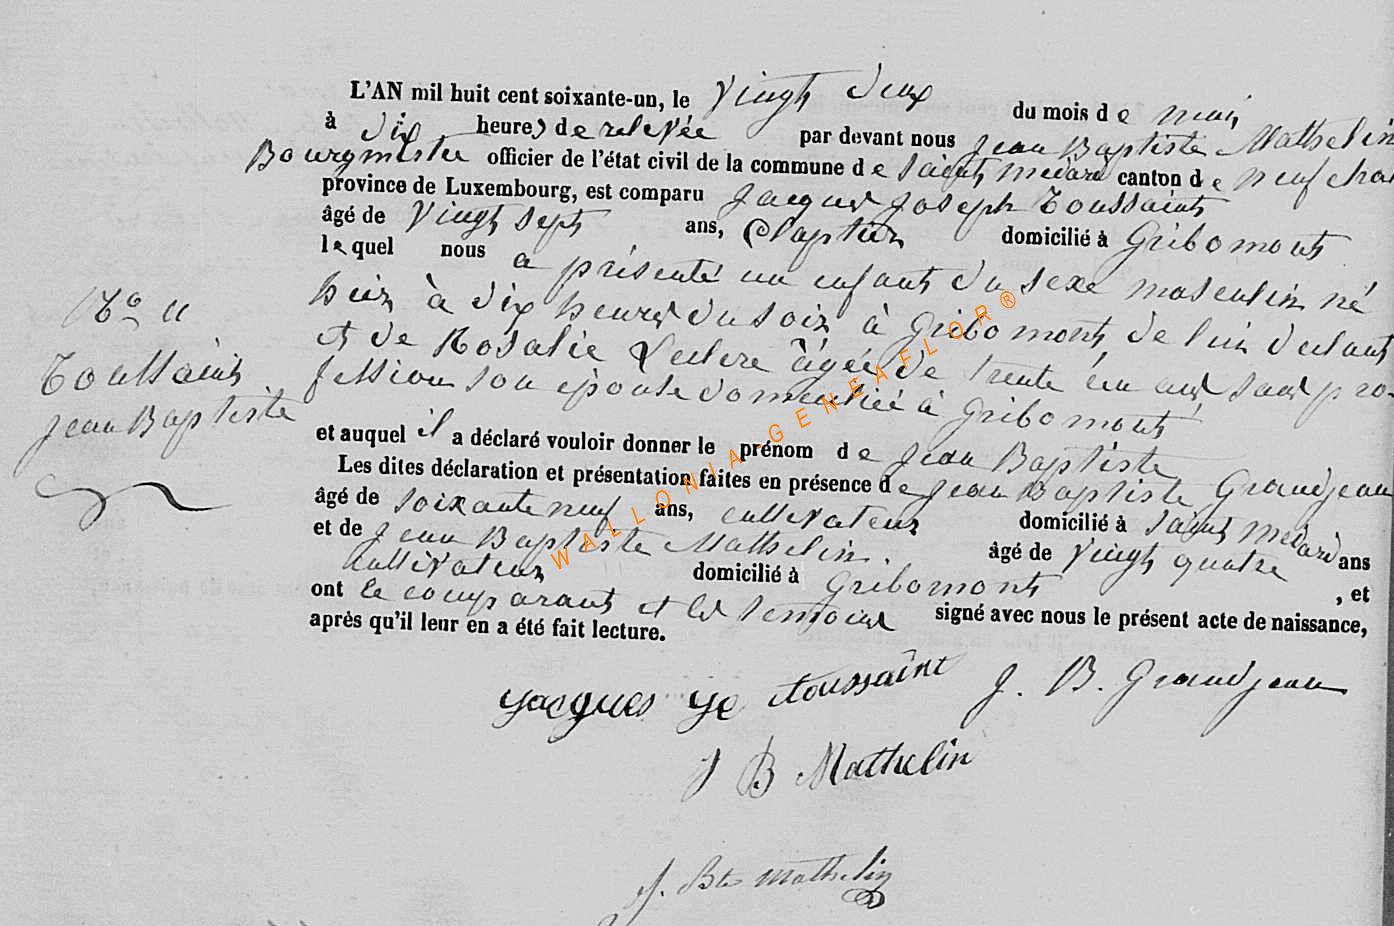 L'AN mil huit cent soixante-un, le vingt deux du mois de mai
à dix heures de relevée par devant nous Jean Baptiste Mathelin
Bourgmestre officier de l'état civil de la commune de Saint medard canton de neufcha
province de Luxembourg, est comparu Jacques Joseph Toussaint
âgé de vingt sept ans, domicilié à Gribomont
lequel nous a présenté un enfant du sexe masculin né
hier à dix heures du soir à Gribomont de lui declarant
et de Rosalie Leclere âgée de trente un ans sans pro-
fession son épouse domiciliée à Gribomont
et auquel il a déclaré vouloir donner le prénom de Jean Baptiste
Les dites déclaration et présentation faites en présence de Jean Baptiste Grandjean
âgé de soixante neuf ans, cultivateur domicilié à Saint Medard
et de Jean Baptiste Mathelin. âgé de vingt quatre ans
cultivateur domicilié à Gribomont , et
ont le comparant et les temoins signé avec nous le présent acte de naissance,
après qu'il leur en a été fait lecture.
No 11
Toussaint
Jean Baptiste
Jacques Je toussaint J. B. Grandjean
J B Mathelin
J. Bte Mathelin
WALLONIA-GENEAFLOR®